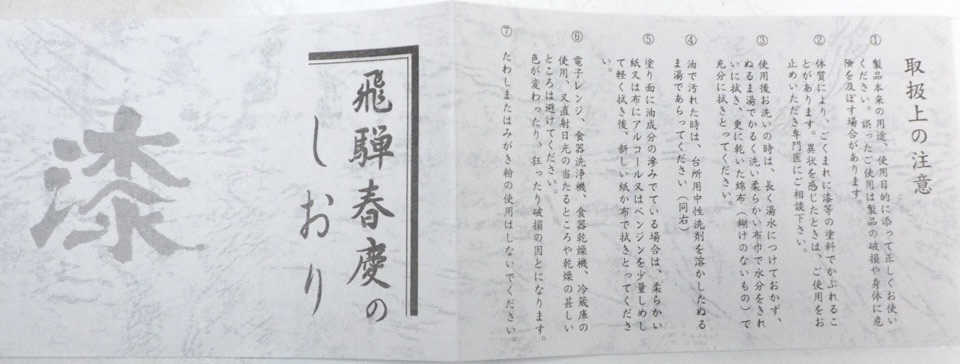 取扱上の注意
① 製品本来の用途、使用目的に添って正しくお使い
ください。誤ったご使用は製品の破損や身体に危
険を及ぼす場合があります。
② 体質により、ごくまれに漆等の塗料でかぶれるこ
とがあります。異状を感じたときは、ご使用をお
止めいただき専門医にご相談下さい。
③ 使用後お洗いの時は、長く湯水につけておかず、
ぬるま湯でかるく洗い柔らかい布巾で水分をきれ
いに拭き、更に乾いた綿布（糊けのないもの）で
充分に拭きとってください。
④ 油で汚れた時は、台所用中性洗剤を溶かしたぬる
ま湯であらってください（同右）
⑤ 塗り面に油成分の滲みでている場合は、柔らかい
紙又は布にアルコール又はベンジンを少量しめし
て軽く拭き後、新しい紙か布で拭きとってくださ
い。
⑥ 電子レンジ、食器洗浄機、食器乾燥機、冷蔵庫の
使用、又直射日光の当たるところや乾燥の甚しい
ところは避けてください。
色が変わったり、狂ったり破損の因とになります。
⑦ たわしまたはみがき粉の使用はしないでください。
飛騨春慶の
しおり
漆